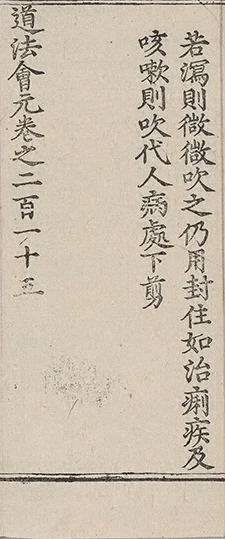 若瀉則微微吹之仍用封住如治痢疾及
咳嗽則吹代人病處下剪
道法會元卷之二百一十五